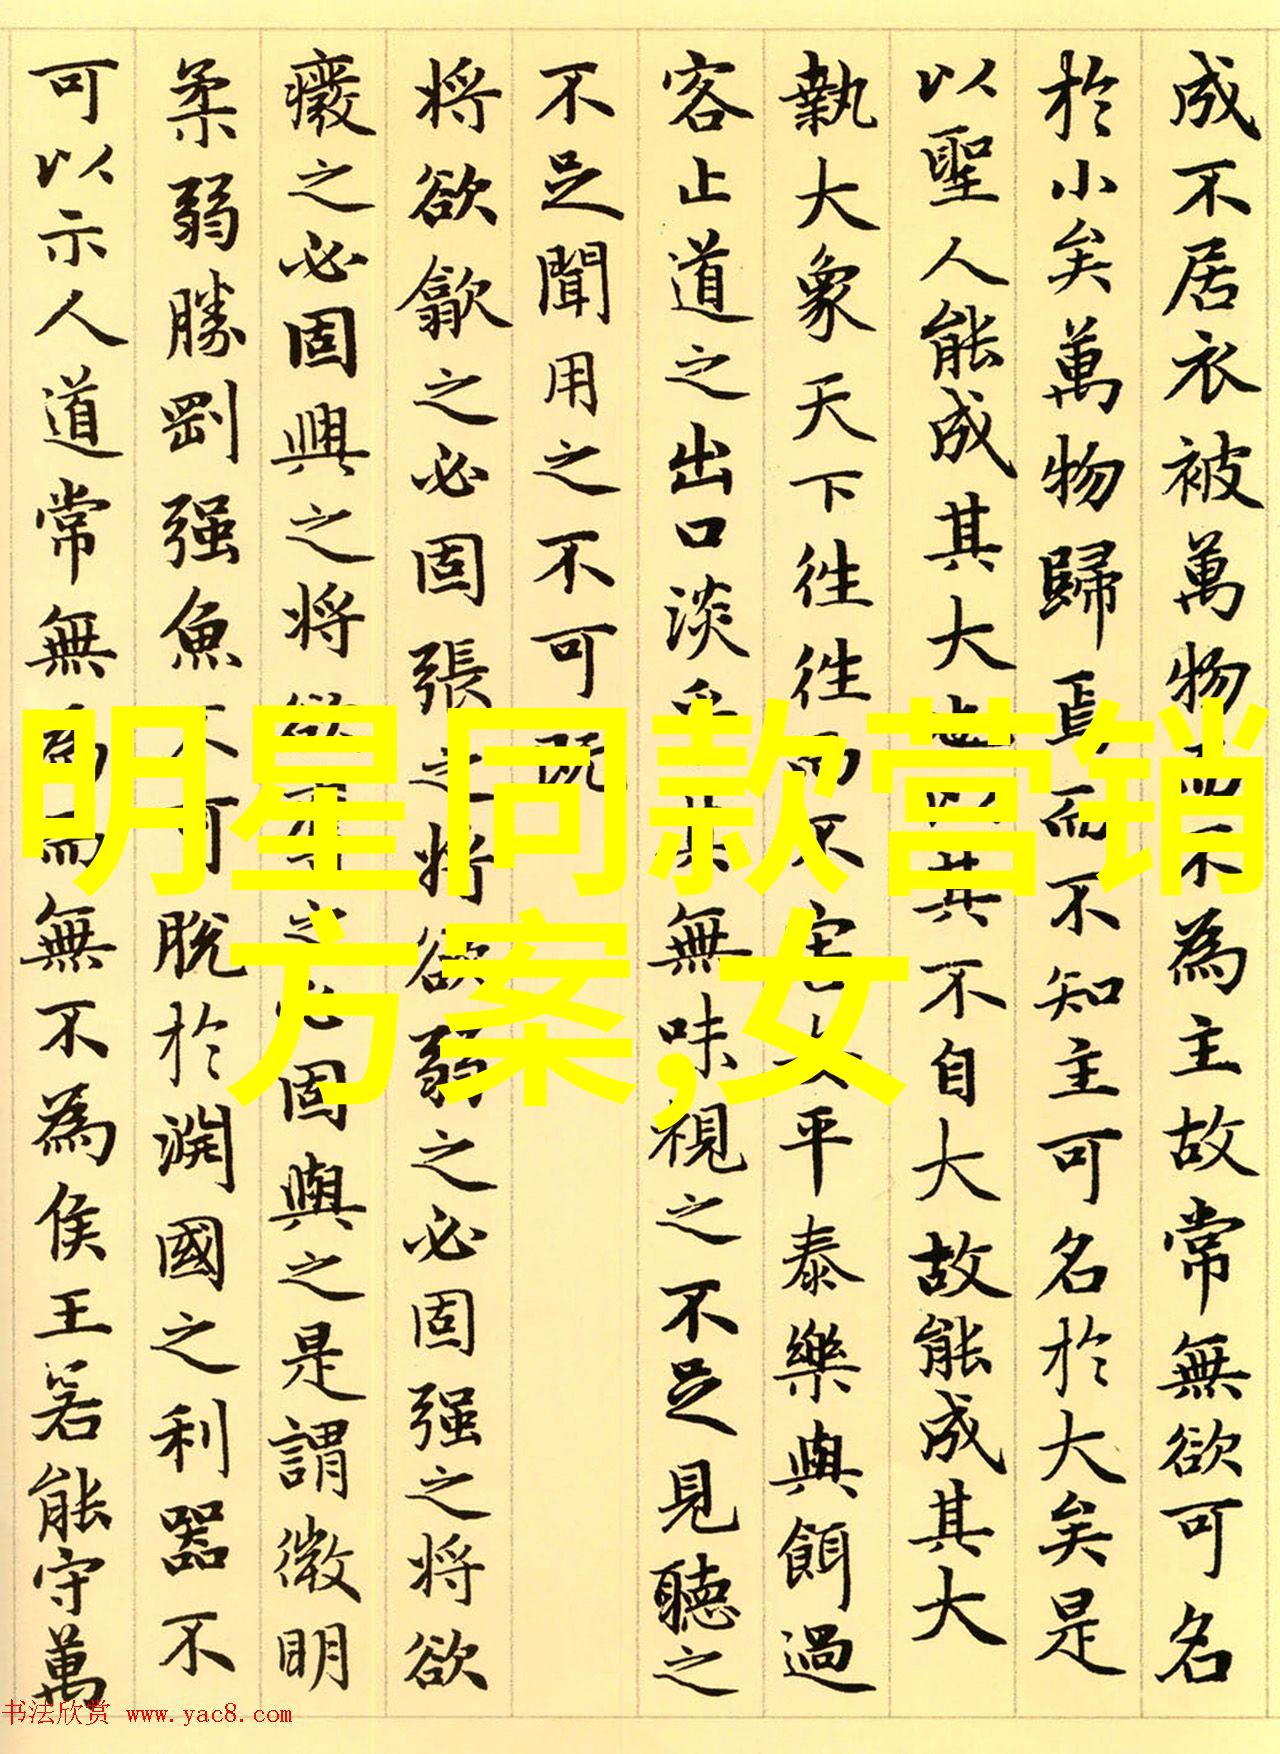 成不居衣被萬物而不為主故常無欲可名
於小矣萬物歸焉而不知主可名於大矣是
以聖人能成其大也以其不自大故能成其大
執大象天下往往而不害安平泰樂與餌過
客止道之出口淡乎其無味視之不足見聽之
不足聞用之不可既
将欲歙之必固張之将欲弱之必固强之将欲
癈之必固興之将欲奪之必固與之是謂微明
柔弱勝剛强魚不可脫於淵國之利器不
可以示人道常無為而無不為侯王若能守萬
明星同款营销
方案,女
书法欣赏 www.yac8.com